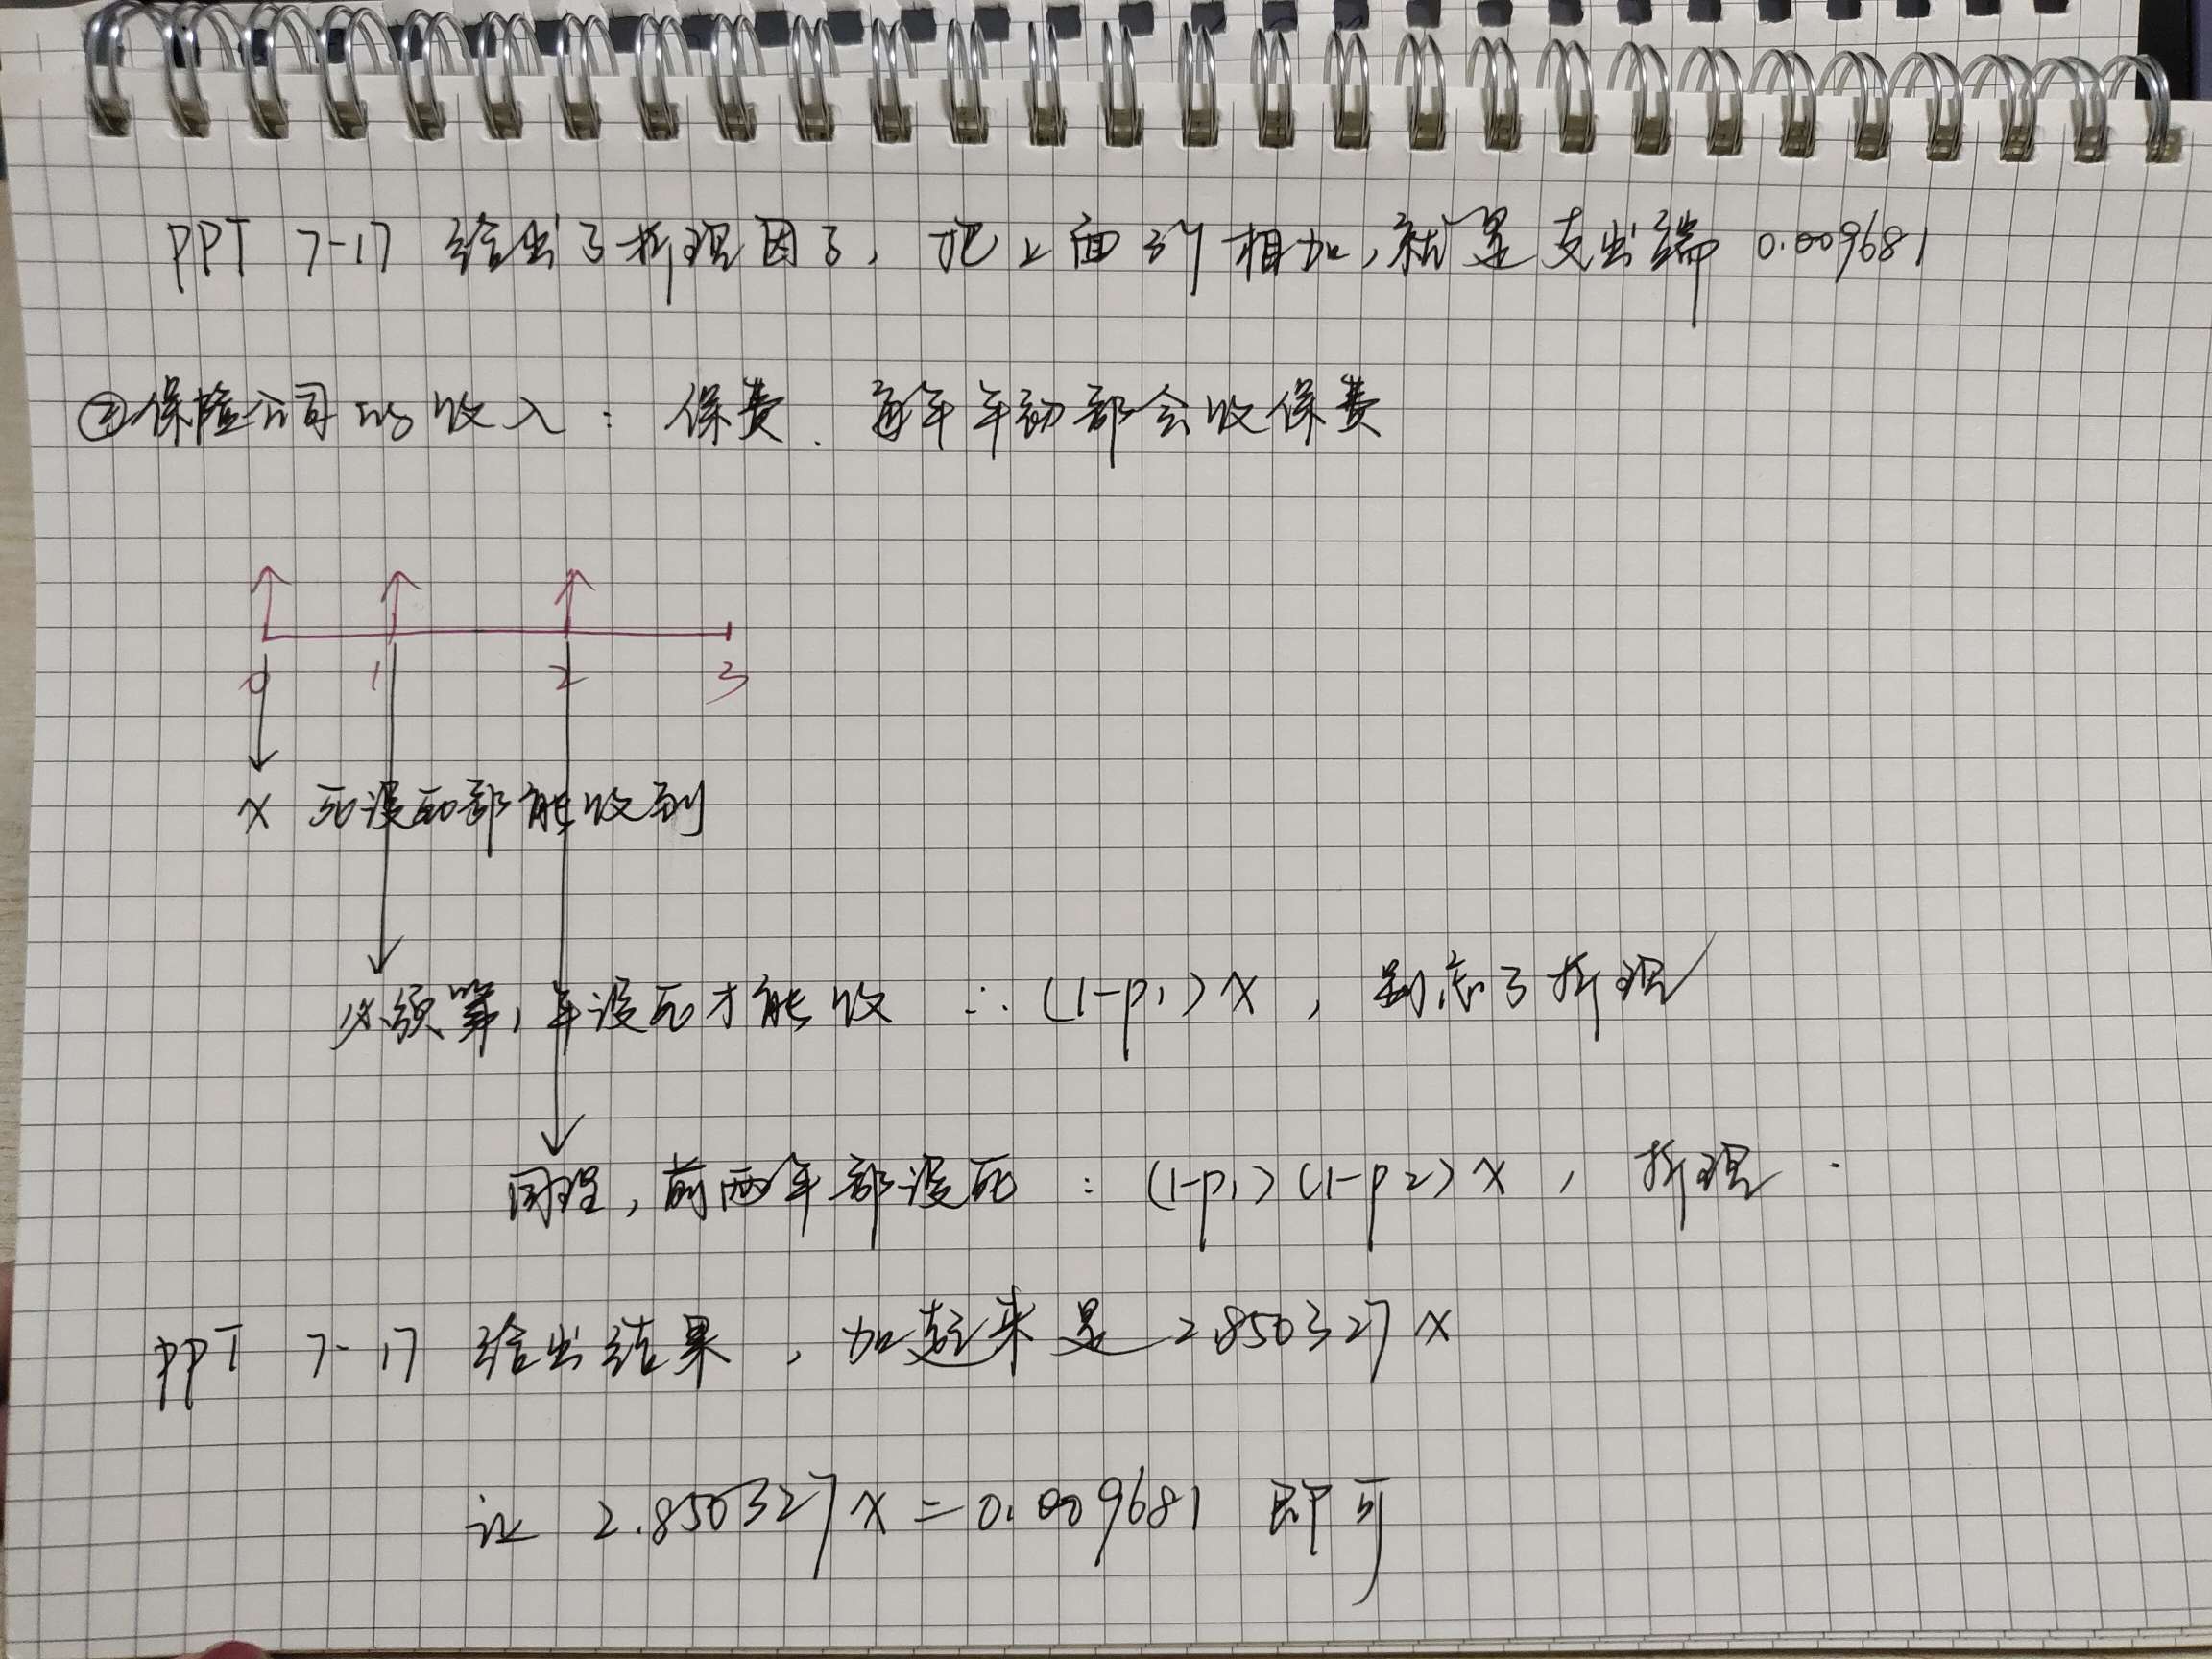 PPT 7-17 给出了折现因子, 把上面3个相加,就是支出端 0.009681
②保险公司的收入: 保费. 每年年初都会收保费
0 1 2 3
x 死没死都能收到
必须第1年没死才能收 ∴ (1-p1)x , 别忘了折现
同理, 前两年都没死 : (1-p1)(1-p2)x , 折现.
PPT 7-17 给出结果, 加起来是 2.850327x
让 2.850327x=0.009681 即可